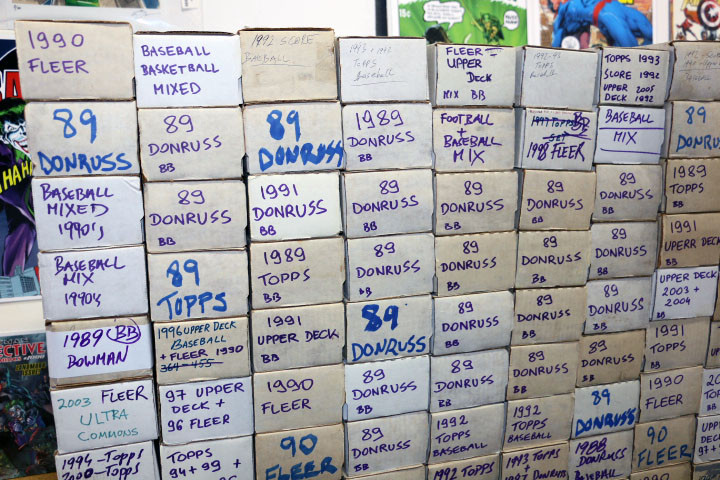 1990
FLEER
89
DONRUSS
BASEBALL
MIXED
1990's
BASEBALL
MIX
1990's
1989 BB
BOWMAN
2003 FLEER
ULTRA
COMMONS
1994-TOPPS
2000-TOPPS
BASEBALL
BASKETBALL
MIXED
89
DONRUSS
BB
89
DONRUSS
BB
89
TOPPS
1996 UPPER DECK
BASEBALL
+ FLEER 1990
364-455
97 UPPER
DECK +
96 FLEER
TOPPS
94 + 99 +
1992 SCORE
BASEBALL
89
DONRUSS
1991
DONRUSS
BB
1989
TOPPS
BB
1991
UPPER DECK
BB
1990
FLEER
90
FLEER
TOPPS
BASEBALL
1989
DONRUSS
BB
89
DONRUSS
BB
89
DONRUSS
BB
89
DONRUSS
89
DONRUSS
BB
89
DONRUSS
BB
FLEER
UPPER
DECK
MIX BB
FOOTBALL
+
BASEBALL
MIX
89
DONRUSS
BB
89
DONRUSS
BB
89
DONRUSS
BB
89
DONRUSS
BB
1992
TOPPS
BASEBALL
1992 TOPPS
1997 TOPPS BB
SET
1998 FLEER
89
DONRUSS
BB
89
DONRUSS
BB
89
DONRUSS
BB
89
DONRUSS
BB
1992
TOPPS
BASEBALL
1993 TOPPS
TOPPS 1993
SCORE 1992
UPPER 2005
DECK 1992
BASEBALL
MIX
89
DONRUSS
BB
89
DONRUSS
BB
89
DONRUSS
BB
89
DONRUSS
BB
89
DONRUSS
1988
DONRUSS
BASEBALL
89
1989
TOPPS
BB
1991
UPERR DECK
BB
UPPER DECK
2003 +
2004
1991
TOPPS
BB
1990
FLEER
90
FLEER